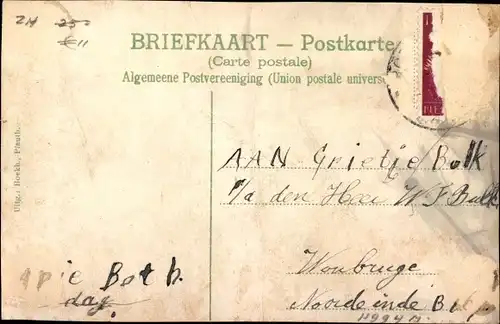 ZH 250
€11
BRIEFKAART — Postkarte
(Carte postale)
Algemeene Postvereeniging (Union postale univers
Uitg.: Boekh.
AAN Grietje Balk
p/a den Heer W F Balk
Woubruge
Noordeinde B
pie Both.
dag